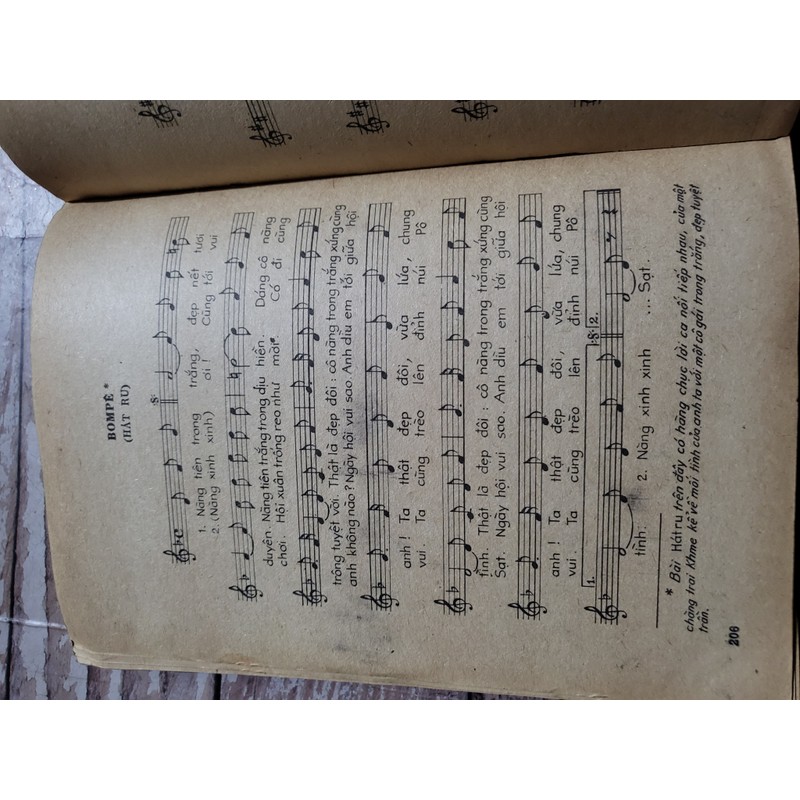 BOMPÊ *
(HÁT RU)
1. Nàng tiên trong trắng, đẹp nết tươi
2. (Nàng xinh xinh) ơi ! Cũng tới vui
duyên. Nàng tiên trắng trong dịu hiền. Dáng cô nàng
chơi. Hội xuân trống reo như mời*. Có đi cùng
trông tuyệt vời. Thật là đẹp đôi : cô nàng trong trắng xứng cùng
anh không nào ? Ngày hội vui sao. Anh dìu em tới giữa hội
anh ! Ta thật đẹp đôi, vừa lứa, chung
vui. Ta cũng trèo lên đỉnh núi Pô
tình. Thật là đẹp đôi : cô nàng trong trắng xứng cùng
Sạt. Ngày hội vui sao. Anh dìu em tới giữa hội
anh ! Ta thật đẹp đôi, vừa lứa, chung
vui. Ta cũng trèo lên đỉnh núi Pô
1. 2.
tình. 2. Nàng xinh xinh ... Sạt.
* Bài Hát ru trên đây có hàng chục lời ca nối tiếp nhau, của một
chàng trai Khme kể về mối tình của anh ta với một cô gái trong trắng, đẹp tuyệt
trần.
206